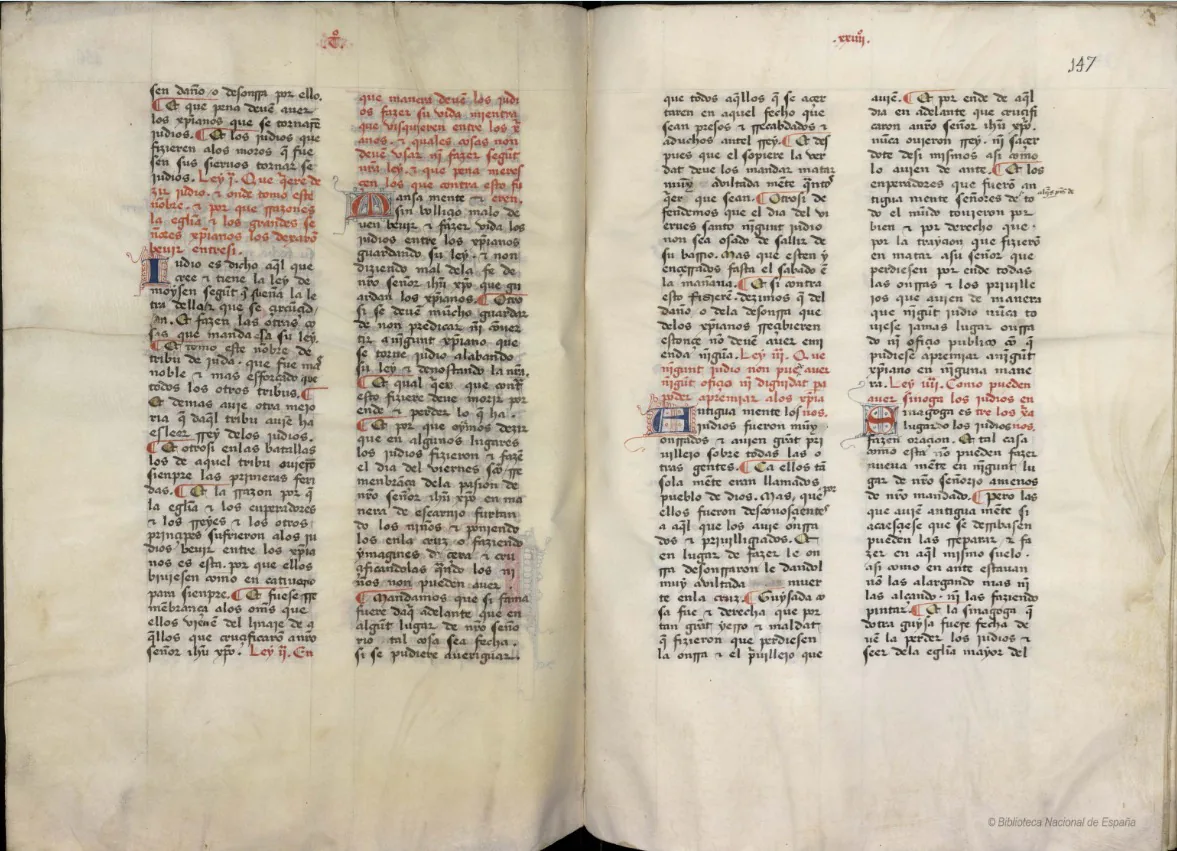 .T.º
sen daño o desonrra por ello.
¶ Et que pena deuẽ auer
los xp̃ianos que se tornarẽ
judios. ¶ Et los judios que
fizieren alos moros q̃ fue
sen sus sieruos tornar se
judios. Ley j̃. Que q̃ere de
zir judio. ⁊ onde tomo este
nõbre. ⁊ por que rrazones
la egl̃ia ⁊ los grandes se
ñores xp̃ianos los dexarõ
beuir entresi.
Iudio es dicho aq̃l que
cree ⁊ tiene la ley de
moysen segũt q̃ sueña la le
tra della. ⁊ que se çircũçid
an. Et fazen las otras co
sas que manda esa su ley.
¶ Et tomo este nõbre de
tribu de juda. que fue mas
noble ⁊ mas esforçado que
todos los otros tribus. ¶
Et demas auie otra mejo
ria q̃ daq̃l tribu auie ha
esleer rrey delos judios.
¶ Et otrosi enlas batallas
los de aquel tribu ouierõ
sienpre las primeras feri
das. ¶ Et la rrazon por q̃
la egl̃ia ⁊ los enperadores
⁊ los rreyes ⁊ los otros
prinçipes sufrieron alos ju
dios beuir entre los xp̃ia
nos es esta. por que ellos
biuiesen como en catiuerio
para sienpre. ¶ Et fuese rre
mẽbrança alos om̃s que
ellos vienẽ del linaje de a
q̃llos que cruçificarõ anr̃o
señor ihũ xp̃o. Ley ij̃. En
que manera deuẽ los judi
os fazer su vida mientra
que visquieren entre los xp̃i
anos. ⁊ quales cosas non
deuẽ vsar nĩ fazer segũt
nr̃a ley. ⁊ que pena meres
çen los que contra esto fi
zieren.
Mansa mente ⁊
sin bolliçio malo de
uen beuir ⁊ fazer vida los
judios entre los xp̃ianos
guardando su ley. ⁊ non
diziendo mal dela fe de
nr̃o señor ihũ xp̃o que gu
ardan los xp̃ianos. ¶ Otro
si se deuẽ mucho guardar
de non predicar nĩ cõuer
tir anĩgunt xp̃iano que
se torne judio alabando
su ley ⁊ denostando la nr̃a.
¶ Et qual q̃er que cont̃
esto fiziere deue morir por
ende ⁊ perder lo q̃ ha.
¶ Et por que oymos dezir
que en algunos lugares
los judios fizieron ⁊ fazẽ
el dia del viernes sc̃o rre
menbrãça dela pasion de
nr̃o señor ihũ xp̃o en ma
nera de escarnio furtan
do los niños ⁊ poniendo
los enla cruz o faziendo
ymagines de çera ⁊ cru
çificandolas q̃ndo los ni
ños non pueden auer.
¶ Mandamos que si fama
fuere daq̃ adelante que en
algũt lugar de nr̃o seño
rio tal cosa sea fecha.
si se pudiere aueriguar.
.xxiiij.º
147
que todos aq̃llos q̃ se açer
taren en aquel fecho que
sean presos ⁊ rrecabdados ⁊
aduchos antel rrey. ¶ Et des
pues que el sopiere la ver
dat deue los mandar matar
muy auiltada mẽte q̃ntos
q̃er que sean. ¶ Otrosi de
fendemos que el dia del vi
ernes santo nĩgunt judio
non sea osado de sallir de
su barrio. Mas que esten y
ençerrados fasta el sabado ẽ
la mañana. ¶ Et si contra
esto fizierẽ. dezimos q̃ del
daño o dela desonrra que
delos xp̃ianos rreçibieren
estonçe nõ deuẽ auer emi
enda nĩgũa. Ley iij̃. Que
nĩgunt judio non puede auer
nĩgũt ofiçio nĩ dignidat pa
poder apremiar alos xp̃ia
nos.
Antigua mente los
judios fueron muy
onrrados ⁊ auien grãt pri
uillejo sobre todas las o
tras gentes. ¶ Ca ellos tã
sola mẽte eran llamados
pueblo de dios. Mas, por que
ellos fueron desconosçientes
a aq̃l que los auie onrra
dos ⁊ priuilligiados. Et
en lugar de fazer le on
rra desonrraron le dandol
muy auiltada muer
te enla cruz. ¶ Guysada co
sa fue ⁊ derecha que por
tan grãt yerro ⁊ maldat
q̃ fizieron que perdiesen
la onrra ⁊ el p̃uillejo que
auiẽ. ¶ Et por ende de aq̃l
dia en adelante que cruçifi
caron anr̃o señor ihũ xp̃o.
nũca ouieron rrey. nĩ saçer
dote desi mismos asi como
lo auien de ante. ¶ Et los
enperadores que fuerõ an
tigua mente señores de to
do el mũdo touieron por
bien ⁊ por derecho que
por la trayçion que fizierõ
en matar asu señor que
perdiesen por ende todas
las onrras ⁊ los priuille
jos que auien de manera
que nĩgũt judio nũca to
uiese jamas lugar onrra
do nĩ ofiçio publico cõ q̃
pudiese apremiar anĩgũt
xp̃iano en nĩguna mane
ra. Ley iiij̃. Como pueden
auer sinoga los judios en
tre los xp̃ianos.
Sinagoga es
lugar do los judios
fazen oraçion. Et tal casa
como esta nõ pueden fazer
nueua mẽte en nĩgunt lu
gar de nr̃o señorio amenos
de nr̃o mandado. ¶ Pero las
que auiẽ antigua mẽte si
acaesçiese que se derribasen
pueden las rreparar ⁊ fa
zer en aq̃l mismo suelo.
asi como en ante estauan
nõ las alargando mas nĩ
las alçando. nĩ las faziendo
pintar. ¶ Et la sinagoga q̃
dotra guysa fuese fecha de
uẽ la perder los judios ⁊
seer dela egl̃ia mayor del
© Biblioteca Nacional de España